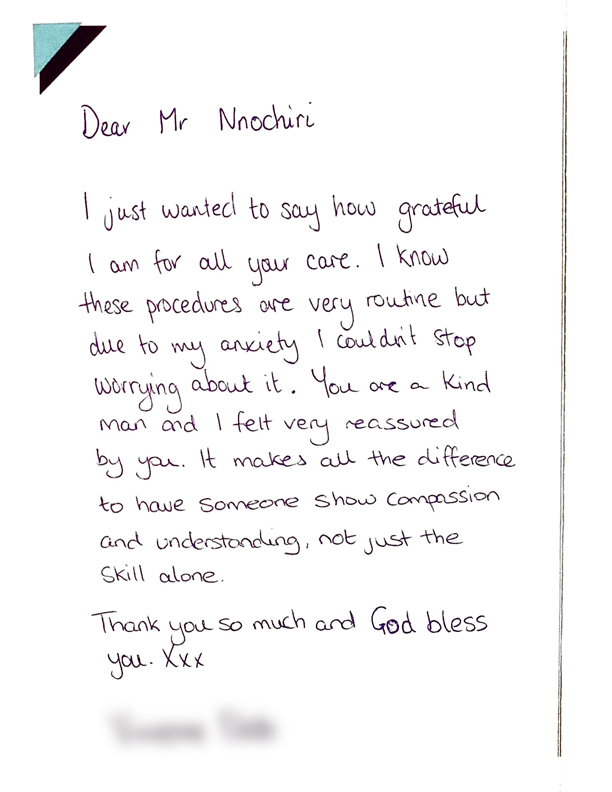 Dear Mr Nnochiri
I just wanted to say how grateful
I am for all your care. I know
these procedures are very routine but
due to my anxiety I couldn't stop
worrying about it. You are a kind
man and I felt very reassured
by you. It makes all the difference
to have someone show compassion
and understanding, not just the
skill alone.
Thank you so much and God bless
you. Xxx